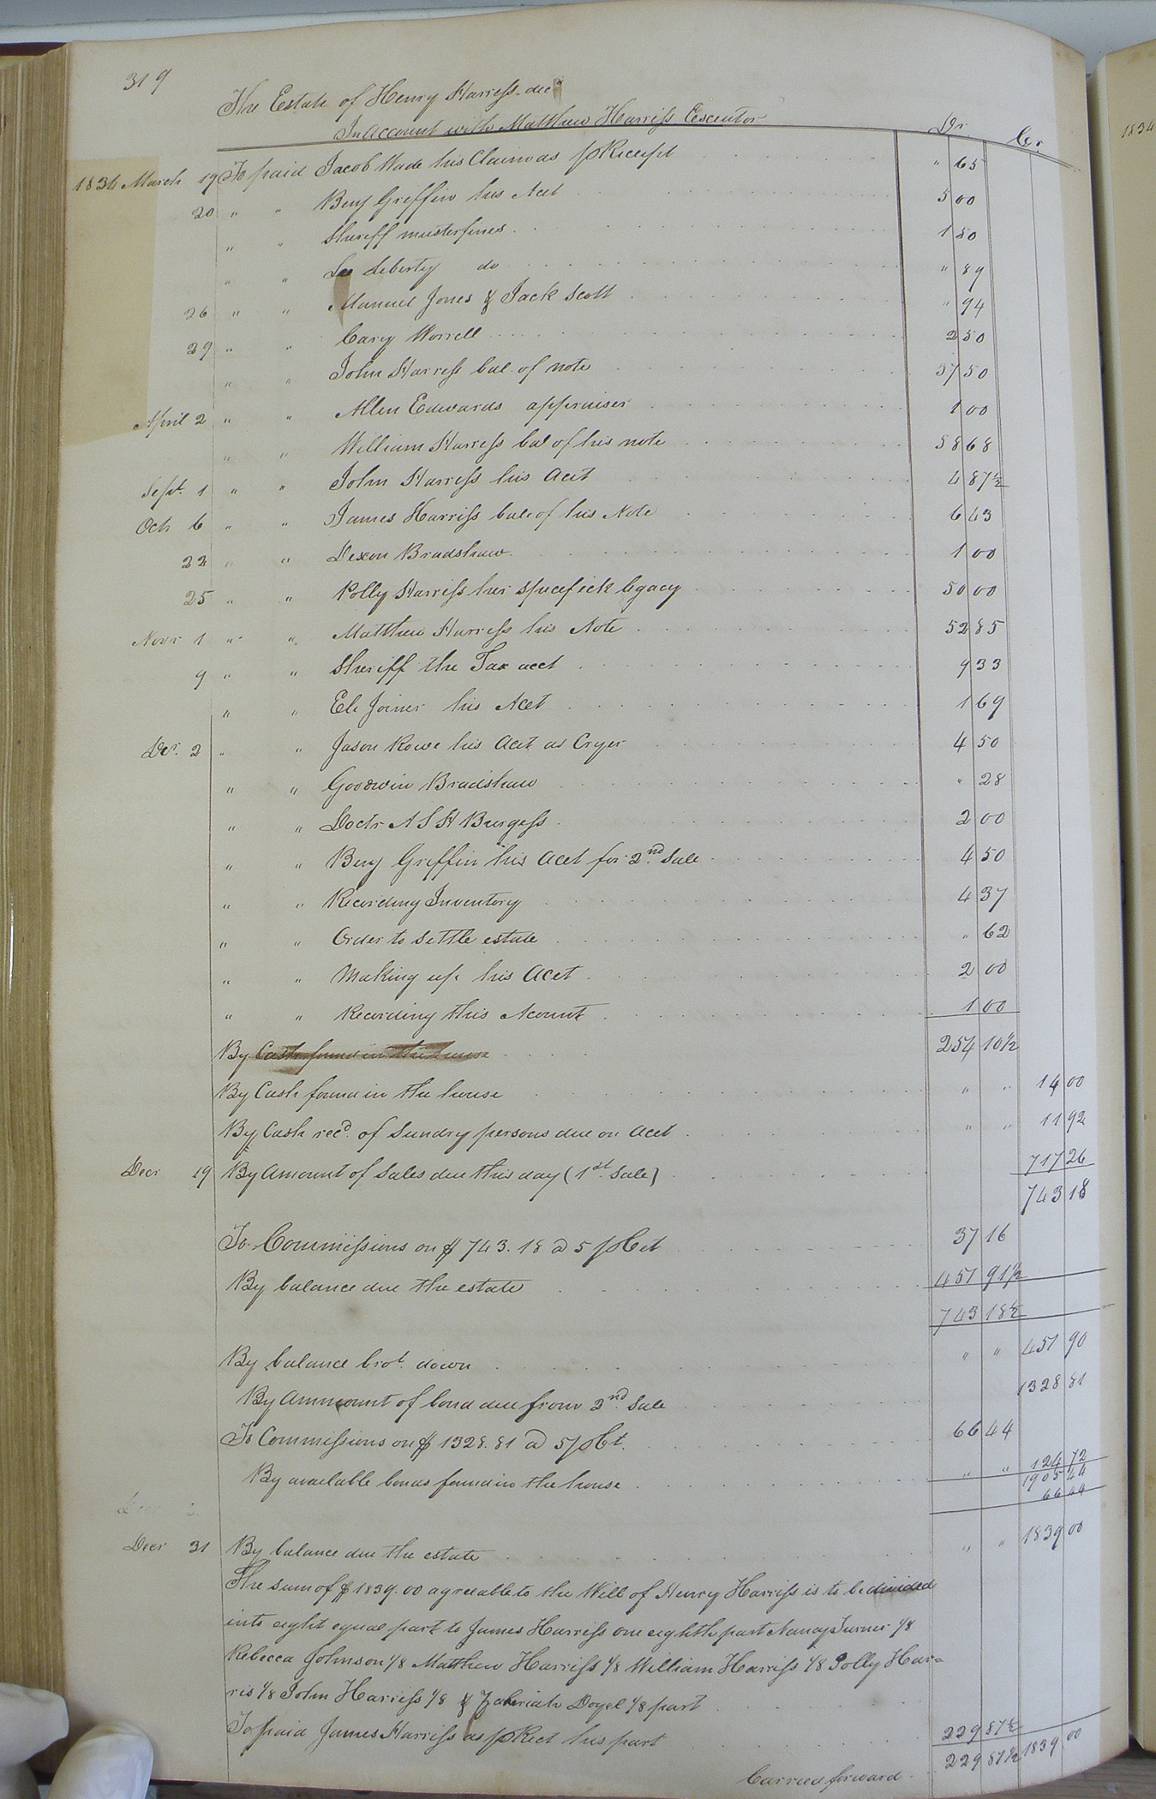 319
The Estate of Henry Harress. decd
In account with Matthew Harriss Executor Dr. Cr.
1836 March 19 To paid Jacob Wade his Claim as pr Receipt " 65
20 " " Benj Greffin his Acct 5 00
" " Sheriff musterfines 1 50
" " Liberty do " 89
26 " " Manuel Jones & Jack Scott " 94
29 " " Cary Worrell 2 50
" " John Harress bal. of note 37 50
April 2 " " Allen Edwards appraiser 1 00
" " William Harress bal of his note 58 68
Sept. 1 " " John Harress his Acct 4 87½
Oct 6 " " James Harriss bal of his Note 6 43
22 " " Dexon Bradshaw 1 00
25 " " Polly Harriss her specefick legacy 50 00
Novr 1 " " Matthew Harress his Note 52 85
9 " " Sheriff the Tax acct 9 33
" " Eli Joiner his Acct 1 69
Dec. 2 " " Jason Rowe his Acct as Cryer 4 50
" " Goodwin Bradshaw " 28
" " Doctr A S H Burgess 2 00
" " Benj Greffin his Acct for 2nd Sale 4 50
" " Recording Inventory 4 37
" " Order to settle estate " 62
" " Making up his Acct 2 00
" " Recording this Acount 1 00
By Cash found in the house 254 10½
By Cash found in the house " " 14 00
By Cash recd. of Sundry persons due on Acct " " 11 92
Decr 19 By Amount of Sales due this day (1st Sale) 717 26
743 18
To Commissions on $ 743.18 @ 5 pr Ct 37 16
By balance due the estate 451 91½
743 18½
By balance brot. down " " 451 90
By Ammount of bond due from 2nd Sale 1328 81
To Commissions on $ 1328.81 @ 5 pr Ct. 66 44
By available bonds found in the house " " 124 72
1905 44
66 44
Decr 31 By balance due the estate " " 1839 00
The sum of $1839.00 agreeable to the Will of Henry Harriss is to be divided
into eight equal part to James Harress one eighth part Nancy Turner 1/8
Rebecca Johnson 1/8 Matthew Harriss 1/8 William Harriss 1/8 Polly Har=
ris 1/8 John Harriss 1/8 & Zakeriah Doyel 1/8 part
To paid James Harriss as pr Rect his part 229 87½
229 87½ 1839 00
Carried forward